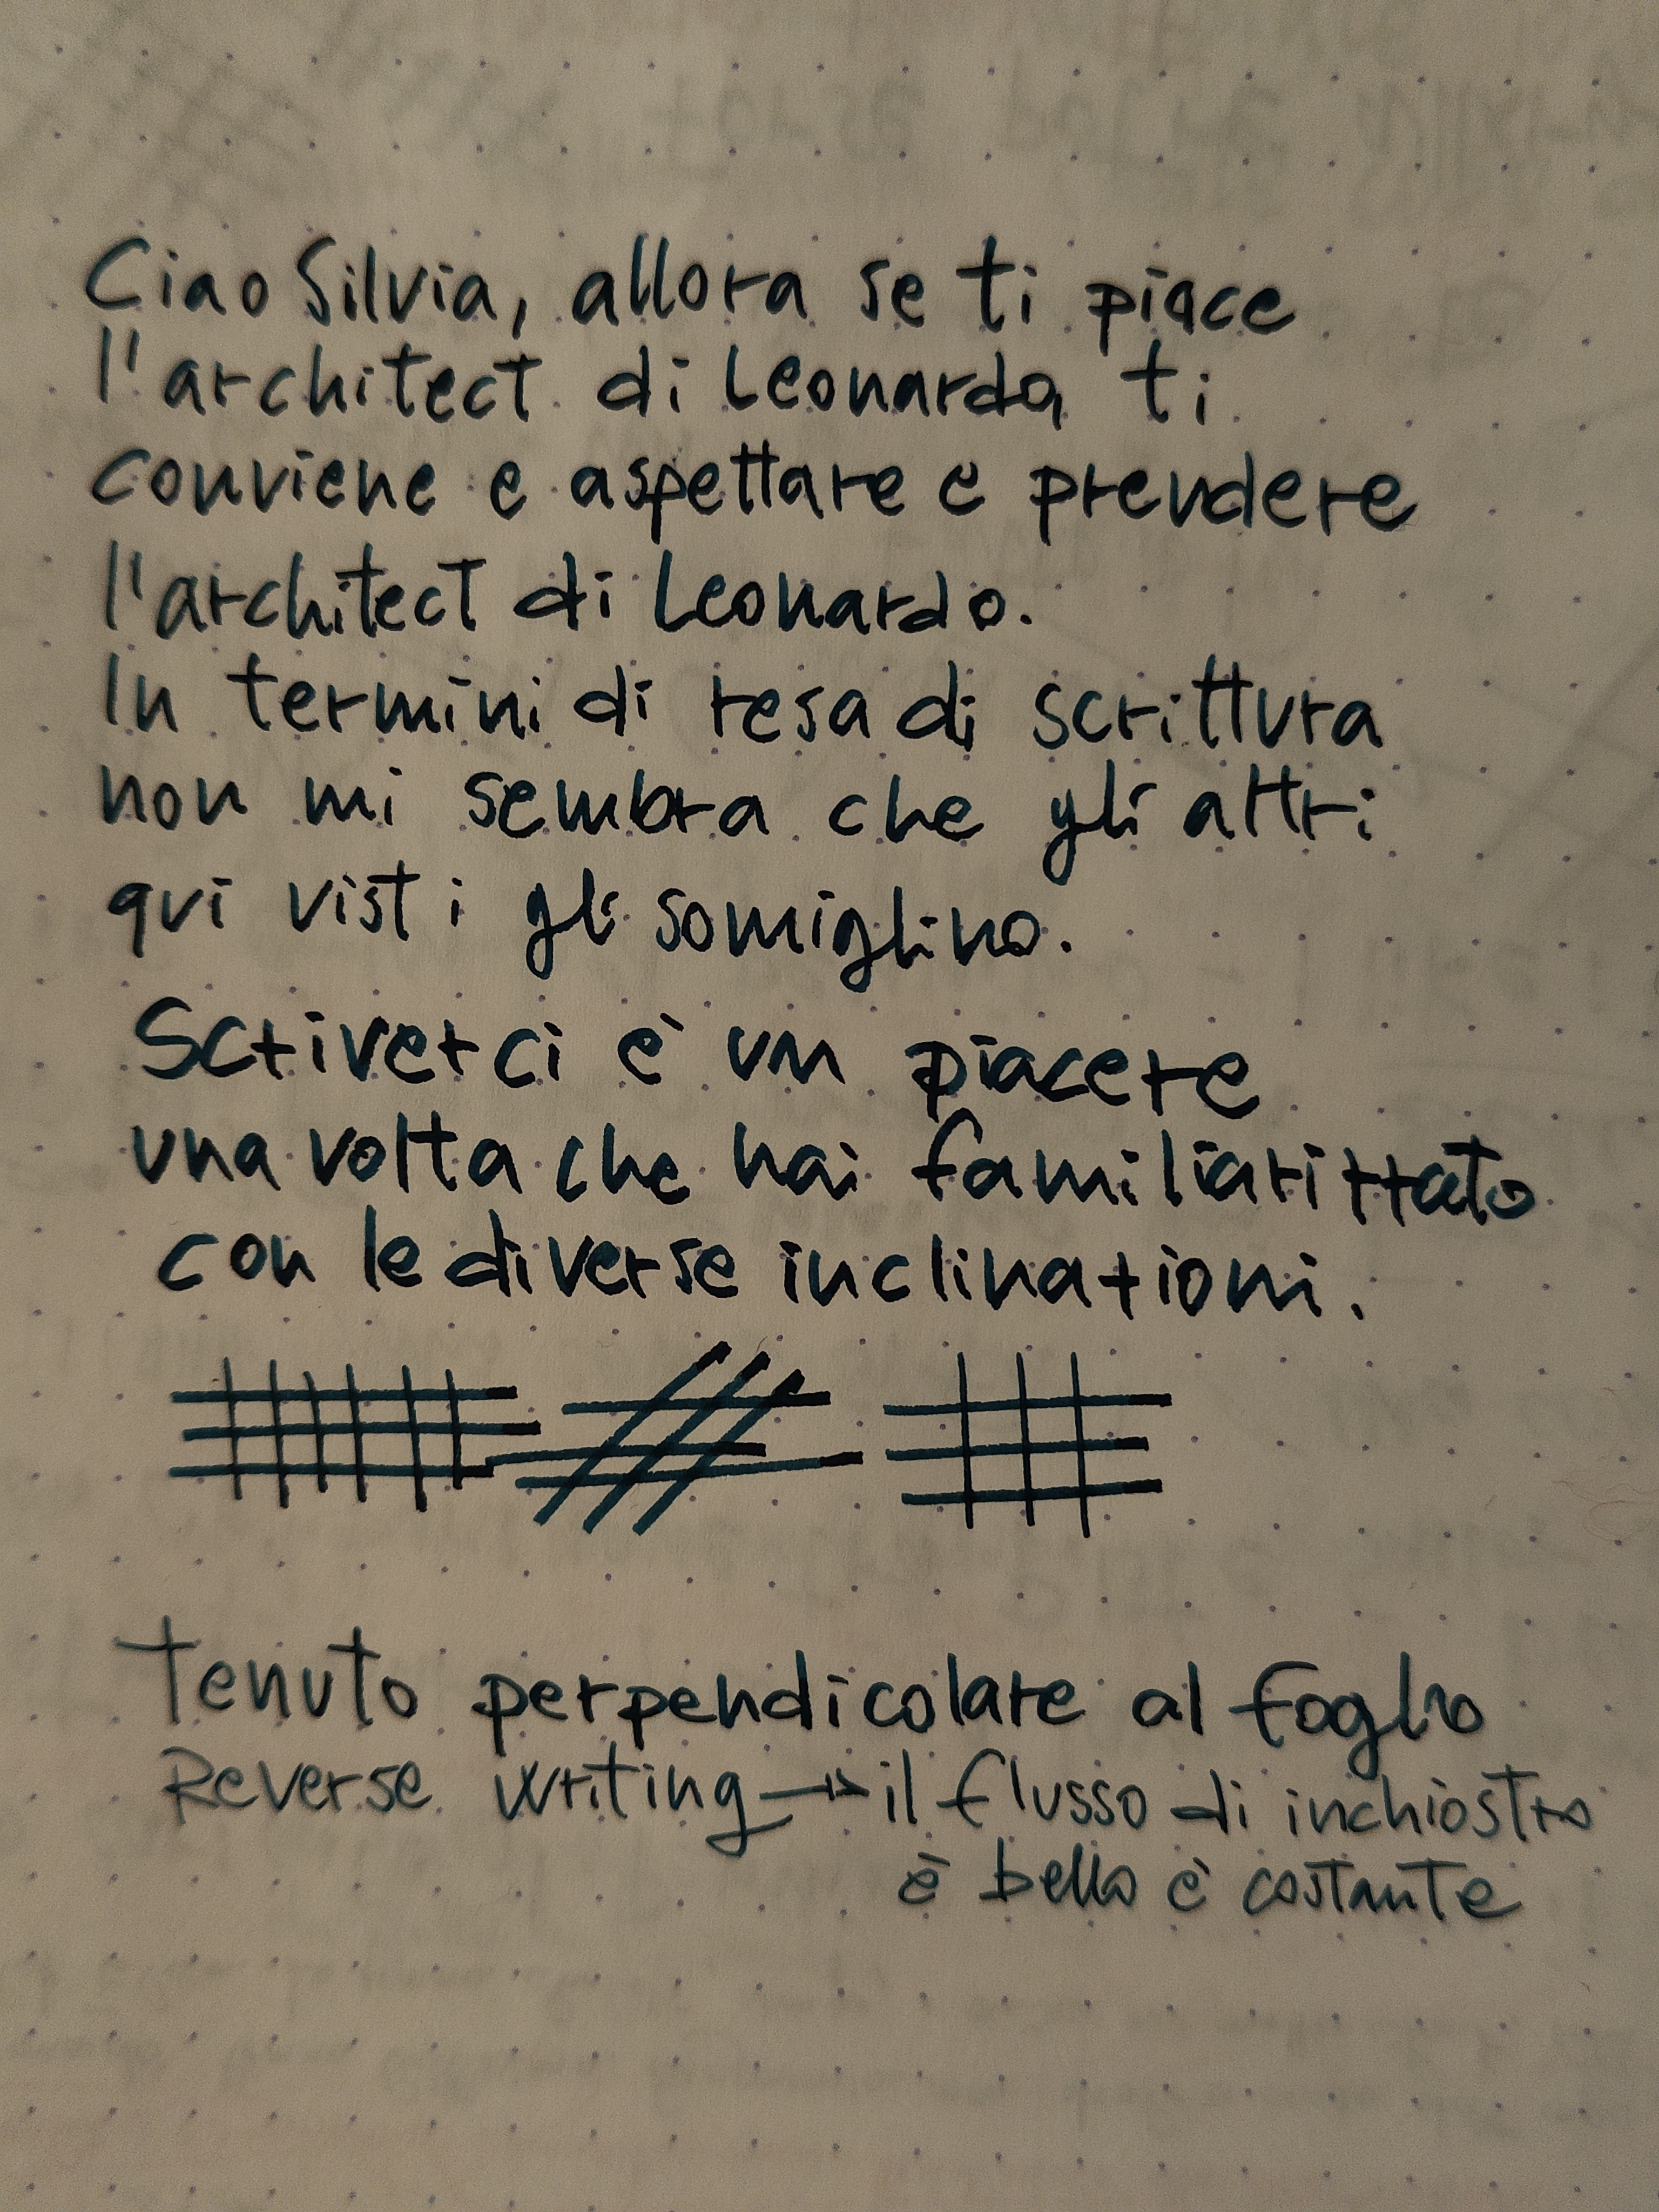 Ciao Silvia, allora se ti piace
l'architect di Leonardo ti
conviene e aspettare e prendere
l'architect di Leonardo.
In termini di resa di scrittura
non mi sembra che gli altri
qui visti gli somiglino.
Scriverci è un piacere
una volta che hai familiarizzato
con le diverse inclinazioni.
Tenuto perpendicolare al foglio
Reverse writing → il flusso di inchiostro
è bello è costante